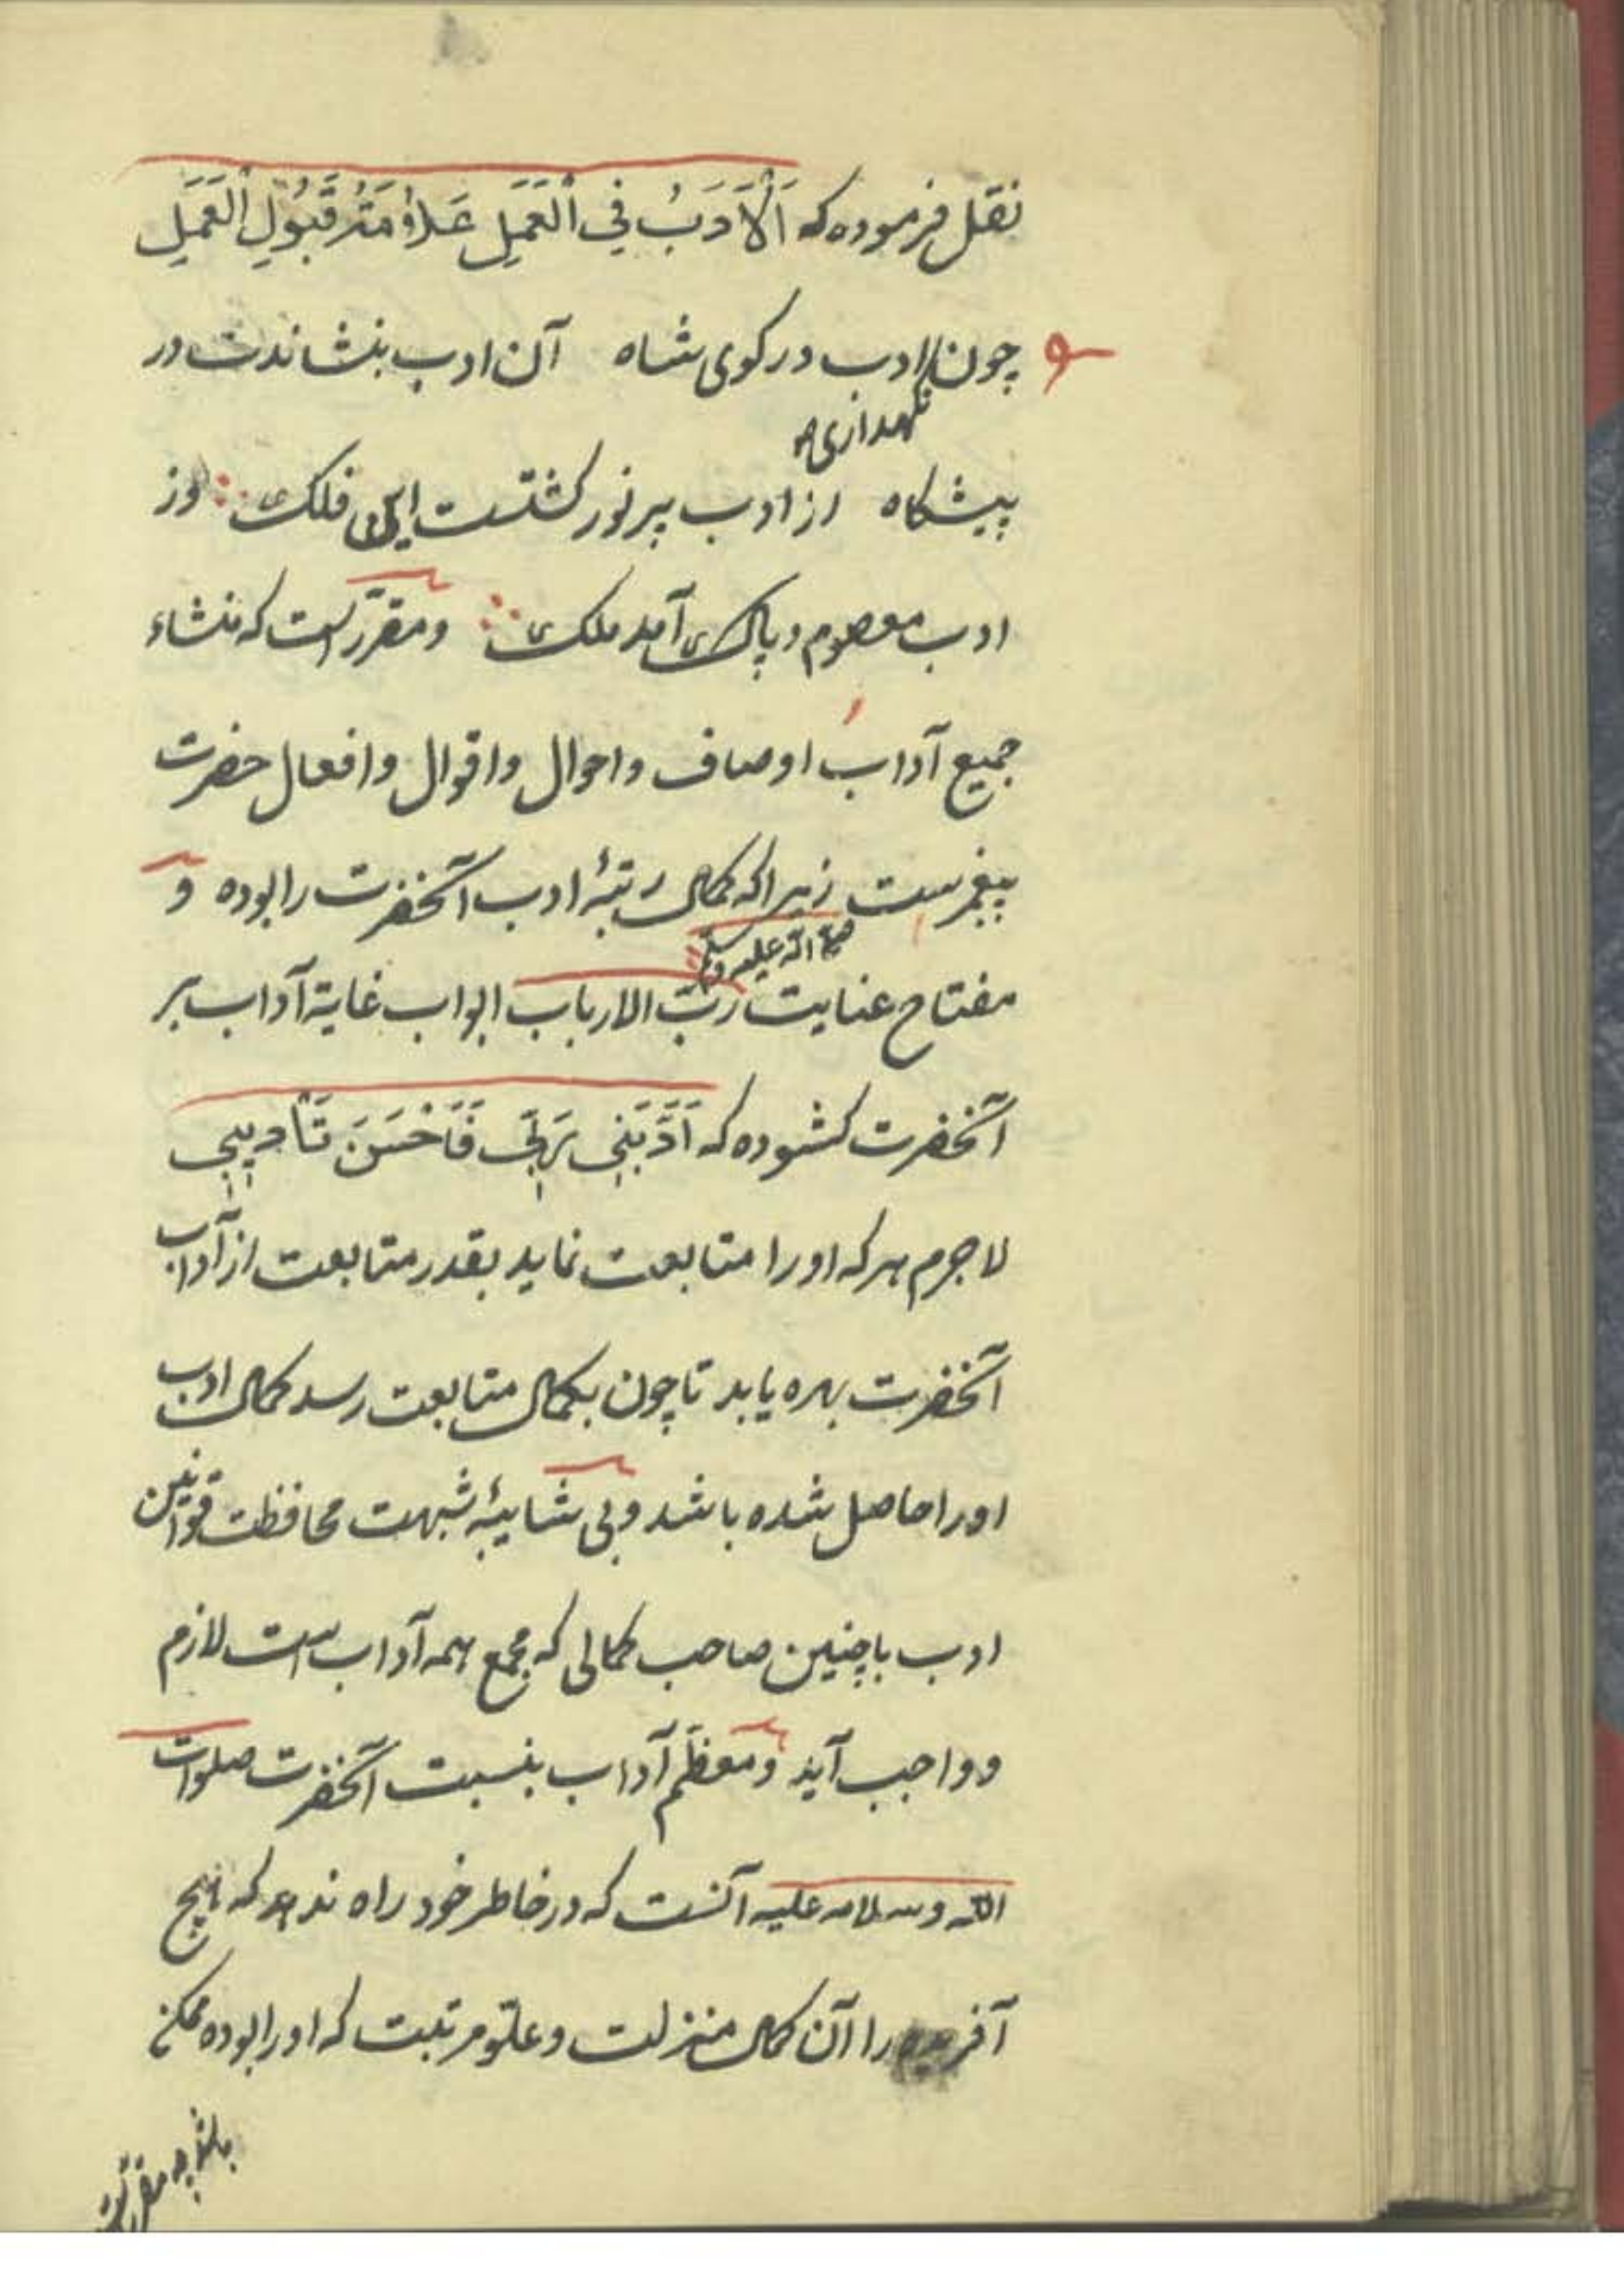 نقل فرموده که اَلْاَدَبُ فِی الْعَمَلِ عَلَامَةُ قَبُولِ الْعَمَلِ
چون ادب در کوی شاه آن ادب بنشاندت در
نگهداری
پیشگاه از ادب پرنور گشتست این فلک وز
ادب معصوم و پاک آمد ملک و مقرّرست که منشاء
جمیع آداب اوصاف و احوال و اقوال و افعال حضرت
پیغمبرست زیرا که کمال رتبهٔ ادب آنحضرت را بوده و
صلی الله علیه وسلم
مفتاح عنایت ربّ الارباب ابواب غایة آداب بر
آنحضرت کشوده که اَدَّبَنِی رَبِّی فَاَحْسَنَ تَأْدِیبِی
لاجرم هر که او را متابعت نماید بقدر متابعت از آداب
آنحضرت بهره یابد تا چون بکمال متابعت رسد کمال ادب
او را حاصل شده باشد و بی شایبهٔ شبهت محافظت قوانین
ادب با چنین صاحب کمالی که مجمع همه آدابست لازم
و واجب آید و معظم آداب بنسبت آنحضرت صلوات
الله وسلامه علیه آنست که در خاطر خود راه ندهد که هیچ
آفریده را آن کمال منزلت و علوّ مرتبت که او را بوده ممکن
باشد چه مقررست